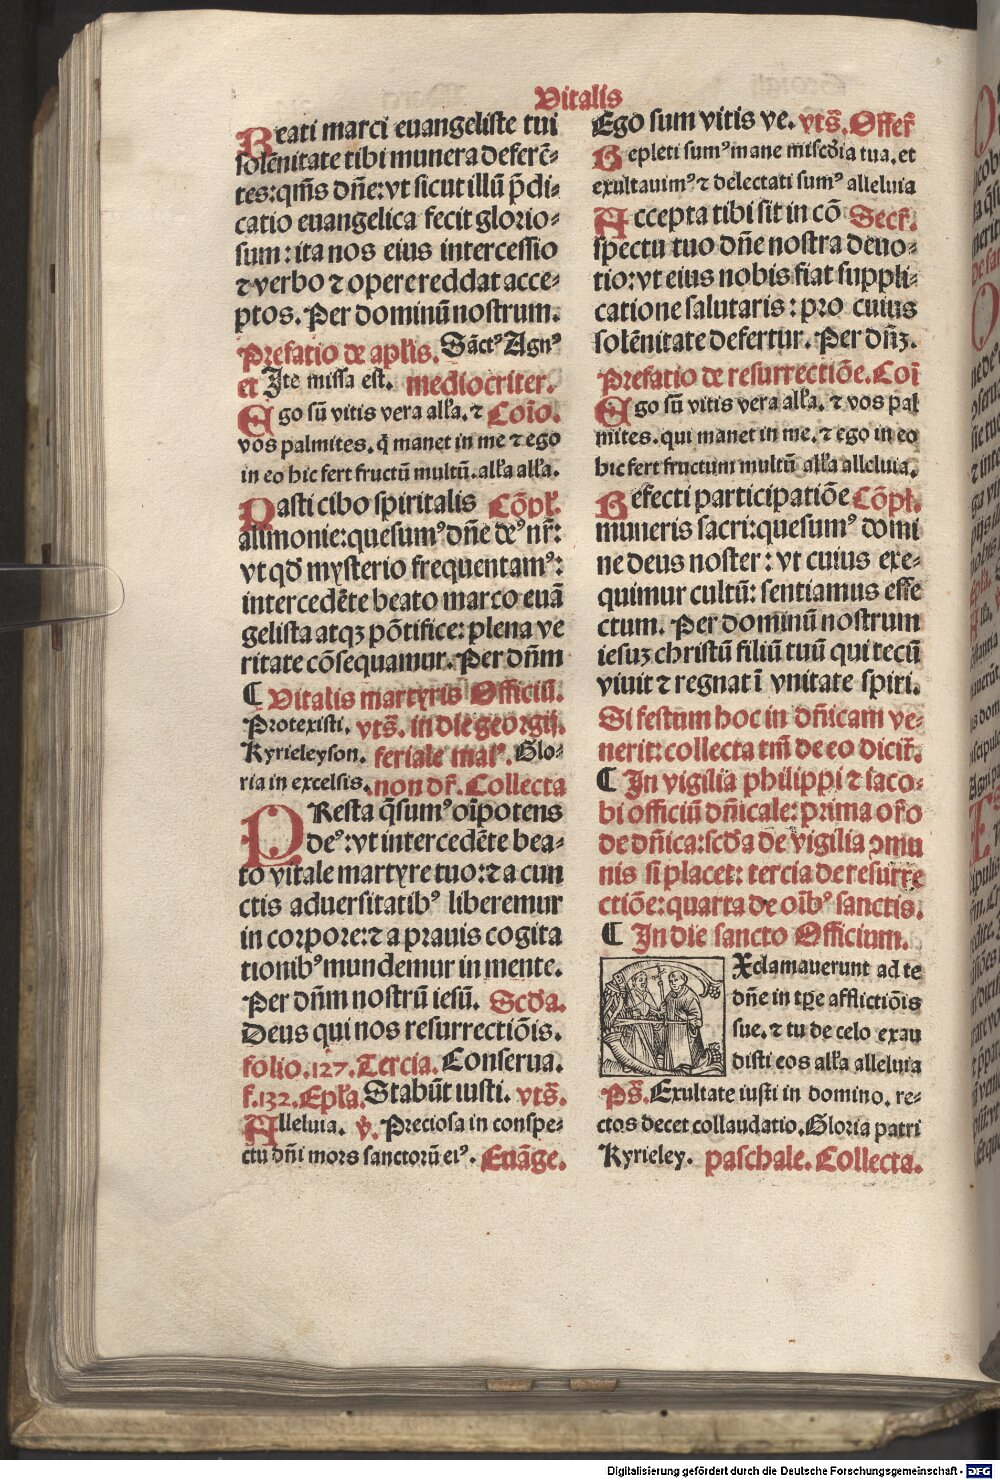 Vitalis
Beati marci euangeliste tui
solēnitate tibi munera deferē-
tes: qm̄s dn̄e: vt sicut illū p̄di-
catio euangelica fecit glorio-
sum: ita nos eius intercessio
⁊ verbo ⁊ opere reddat acce-
ptos. Per dominū nostrum.
Prefatio de aplis. Sāctꝰ Agnꝰ
et Ite missa est. mediocriter.
Ego sū vitis vera alla. ⁊ Coīo.
vos palmites. q̄ manet in me ⁊ ego
in eo hic fert fructū multū. alla alla.
Pasti cibo spiritalis Cōpl.
alimonie: quesumꝰ dn̄e deꝰ nr̄:
vt qd̄ mysterio frequentamꝰ:
intercedēte beato marco euā
gelista atqꝫ pōtifice: plena ve
ritate cōsequamur. Per dn̄m
¶ Vitalis martyris Officiū.
Protexisti. vts̄. in die georgij.
Kyrieleyson. feriale maiꝰ. Glo-
ria in excelsis. non dr̄. Collecta
PResta q̄sumꝰ oīpotens
deꝰ: vt intercedēte bea-
to vitale martyre tuo: ⁊ a cun
ctis aduersitatibꝰ liberemur
in corpore: ⁊ a prauis cogita
tionibꝰ mundemur in mente.
Per dn̄m nostrū iesū. Scd̄a.
Deus qui nos resurrectiōis.
folio. 127. Tercia. Conserua.
f. 132. Epla. Stabūt iusti. vts̄.
Alleluia. ℣. Preciosa in conspe-
ctu dn̄i mors sanctorū eiꝰ. Euāge.
Ego sum vitis ve. vts̄. Offer̄
Repleti sumꝰ mane misc̄dia tua. et
exultauimꝰ ⁊ delectati sumꝰ alleluia
Accepta tibi sit in cō Secr̄.
spectu tuo dn̄e nostra deuo-
tio: vt eius nobis fiat suppli-
catione salutaris: pro cuius
solēnitate defertur. Per dn̄ꝫ.
Prefatio de resurrectiōe. Coī
Ego sū vitis vera alla. ⁊ vos pal
mites. qui manet in me. ⁊ ego in eo
hic fert fructum multū alla alleluia.
Refecti participatiōe Cōpl.
muneris sacri: quesumꝰ domi
ne deus noster: vt cuius exe-
quimur cultū: sentiamus effe
ctum. Per dominū nostrum
iesuꝫ christū filiū tuū qui tecū
viuit ⁊ regnat ī vnitate spiri.
Si festum hoc in dn̄icam ve-
nerit: collecta tm̄ de eo dicit̄.
¶ In vigilia philippi ⁊ iaco-
bi officiū dn̄icale: prima or̄o
de dn̄ica: scd̄a de vigilia ꝯmu
nis si placet: tercia de resurre
ctiōe: quarta de oībꝰ sanctis.
¶ In die sancto Officium.
Xclamauerunt ad te
dn̄e in tp̄e afflictiōis
sue. ⁊ tu de celo exau
disti eos alla alleluia
Ps̄. Exultate iusti in domino. re-
ctos decet collaudatio. Gloria patri
Kyrieley. paschale. Collecta.
Digitalisierung gefördert durch die Deutsche Forschungsgemeinschaft - DFG